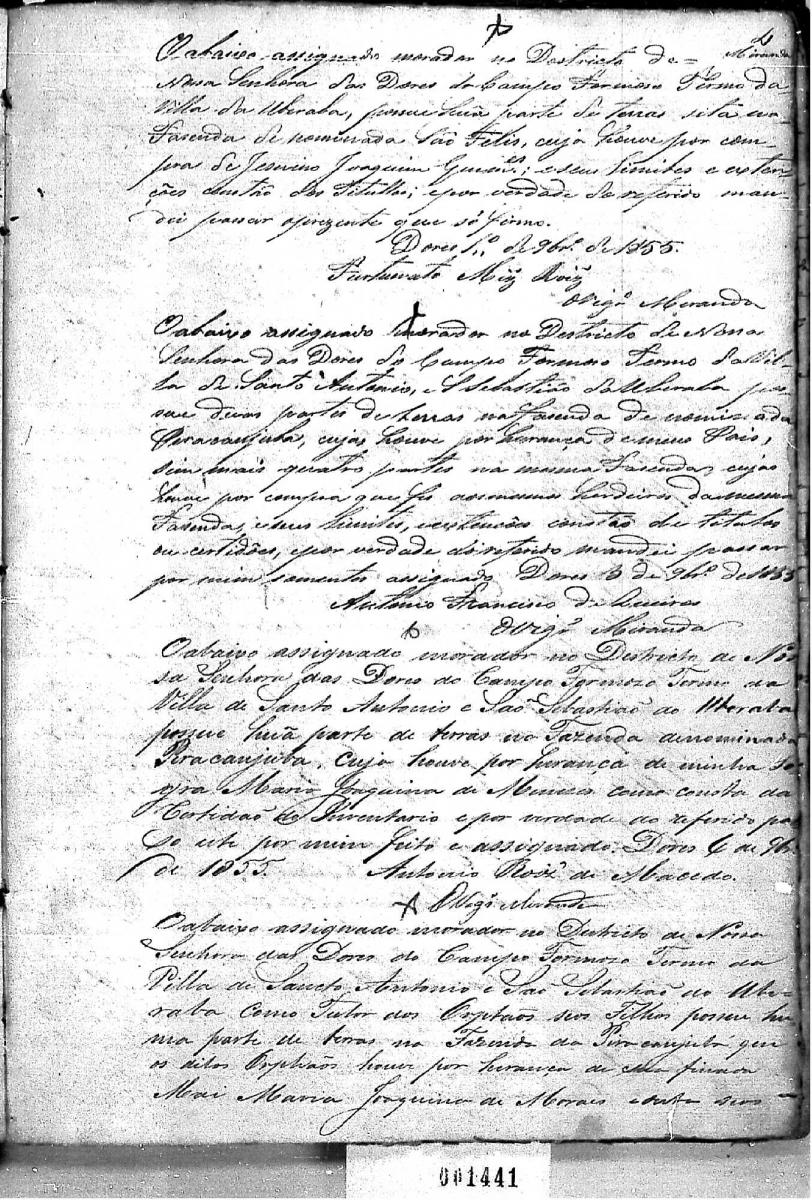 2
Miranda
O abaixo assignado morador no Destricto de=
Nossa Senhora das Dores do Campo Formoso Termo da
Villa da Uberaba, possue huã parte de terras sita na
Fazenda de nominada São Felis, cuja houve por com
pra de Jesuino Joaquim; e seus limites e exten
ções constão dos Titulos; e por verdade do referido man
dei passar aprezente que só firmo.
Dores 1.º de 9br.º de 1855.
Furtunato Miz Roiz
O Vigr.º Miranda
O abaixo assignado morador no Destricto de Nossa
Senhora das Dores do Campo Formoso Termo da Vil-
la de Santo Antonio, e S Sebastião do Uberaba pos-
sue duas partes de terras na fasenda de nominada
Piracanjuba, cujas houve por herança de meus Pais,
sim mais quatro partes na mesma Fasenda, cujas
houve por compra que fis aos mesmos herdeiros da mesma
Fazenda, e seus limites, e extenções constão de titulos
ou certidões, e por verdade do referido mandei passar
por mim somente assignado. Dores 3 de 9br.º de 1855
Antonio Francisco de Queiros
O Vigr.º Miranda
O abaixo assignado morador no Districto de Nos
sa Senhora das Dores do Campo Formozo Termo da
Villa de Santo Antonio e Saõ Sebastiaõ do Uberaba
possue huã parte de terras na Fazenda denominada
Piracanjuba, cuja houve por herança de minha So
gra Maria Joaquina de Menezes como consta da
Certidaõ do Inventario e por verdade do referido pa
so este por mim feito e assignado. Dores 6 de 9br.º
de 1855. Antonio Roiz de Macedo.
O Vigr.º Miranda
O abaixo assignado morador no Districto de Nossa
Senhora das Dores do Campo Formozo Termo da
Villa de Sancto Antonio e Saõ Sebastiaõ do Ube-
raba como Tutor dos Orphaõs seos Filhos possue hu
ma parte de terras na Fazenda da Piracanjuba que
os ditos Orphaõs houve por herança de sua finada
Mai Maria Joaquina de Moraes seos=
001441